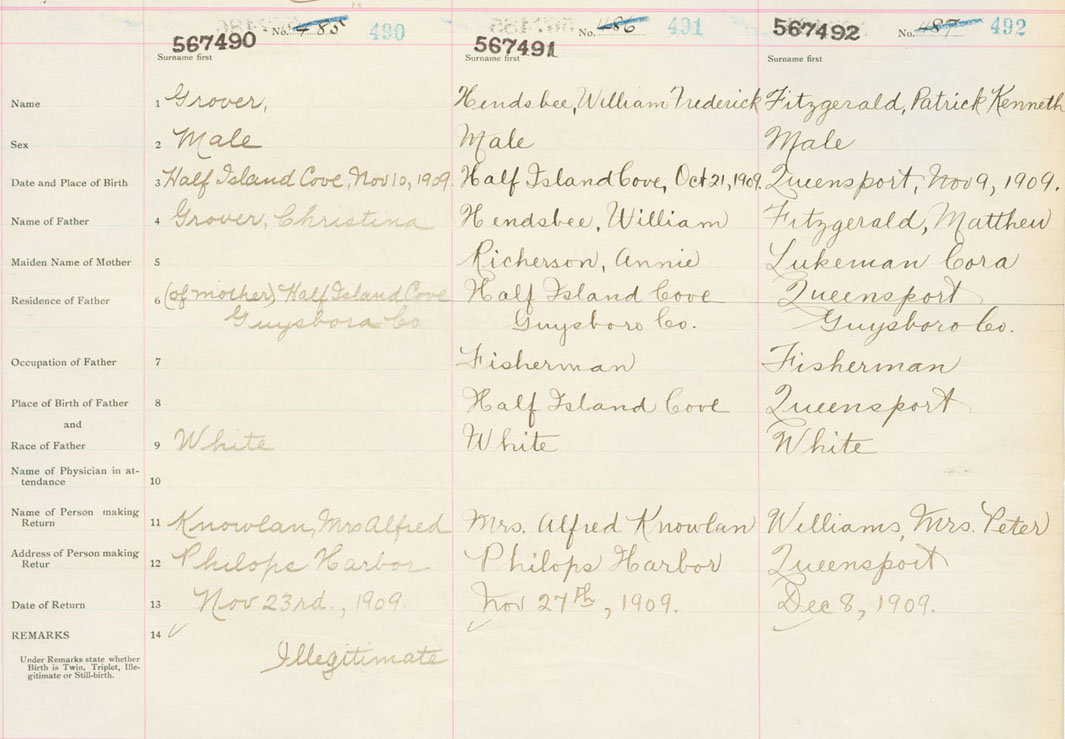 567490 No. 485 490 567491 No. 486 491 567492 No. 487 492
Surname first Surname first Surname first
Name 1 Grover, Hendsbee, William Frederick Fitzgerald, Patrick Kenneth
Sex 2 Male Male Male
Date and Place of Birth 3 Half Island Cove, Nov 10, 1909. Half Island Cove, Oct 21, 1909. Queensport, Nov 9, 1909.
Name of Father 4 Grover, Christina Hendsbee, William Fitzgerald, Matthew
Maiden Name of Mother 5 Richerson, Annie Lukeman Cora
Residence of Father 6 (of mother) Half Island Cove Half Island Cove Queensport
Guysbora Co Guysboro Co. Guysboro Co.
Occupation of Father 7 Fisherman Fisherman
Place of Birth of Father 8 Half Island Cove Queensport
and
Race of Father 9 White White White
Name of Physician in at-
tendance 10
Name of Person making
Return 11 Knowlan, Mrs Alfred Mrs. Alfred Knowlan Williams, Mrs. Peter
Address of Person making
Retur 12 Philops Harbor Philops Harbor Queensport
Date of Return 13 Nov 23rd., 1909. Nov 27th, 1909. Dec 8, 1909.
REMARKS 14
Under Remarks state whether
Birth is Twin, Triplet, Ille-
gitimate or Still-birth.
Illegitimate